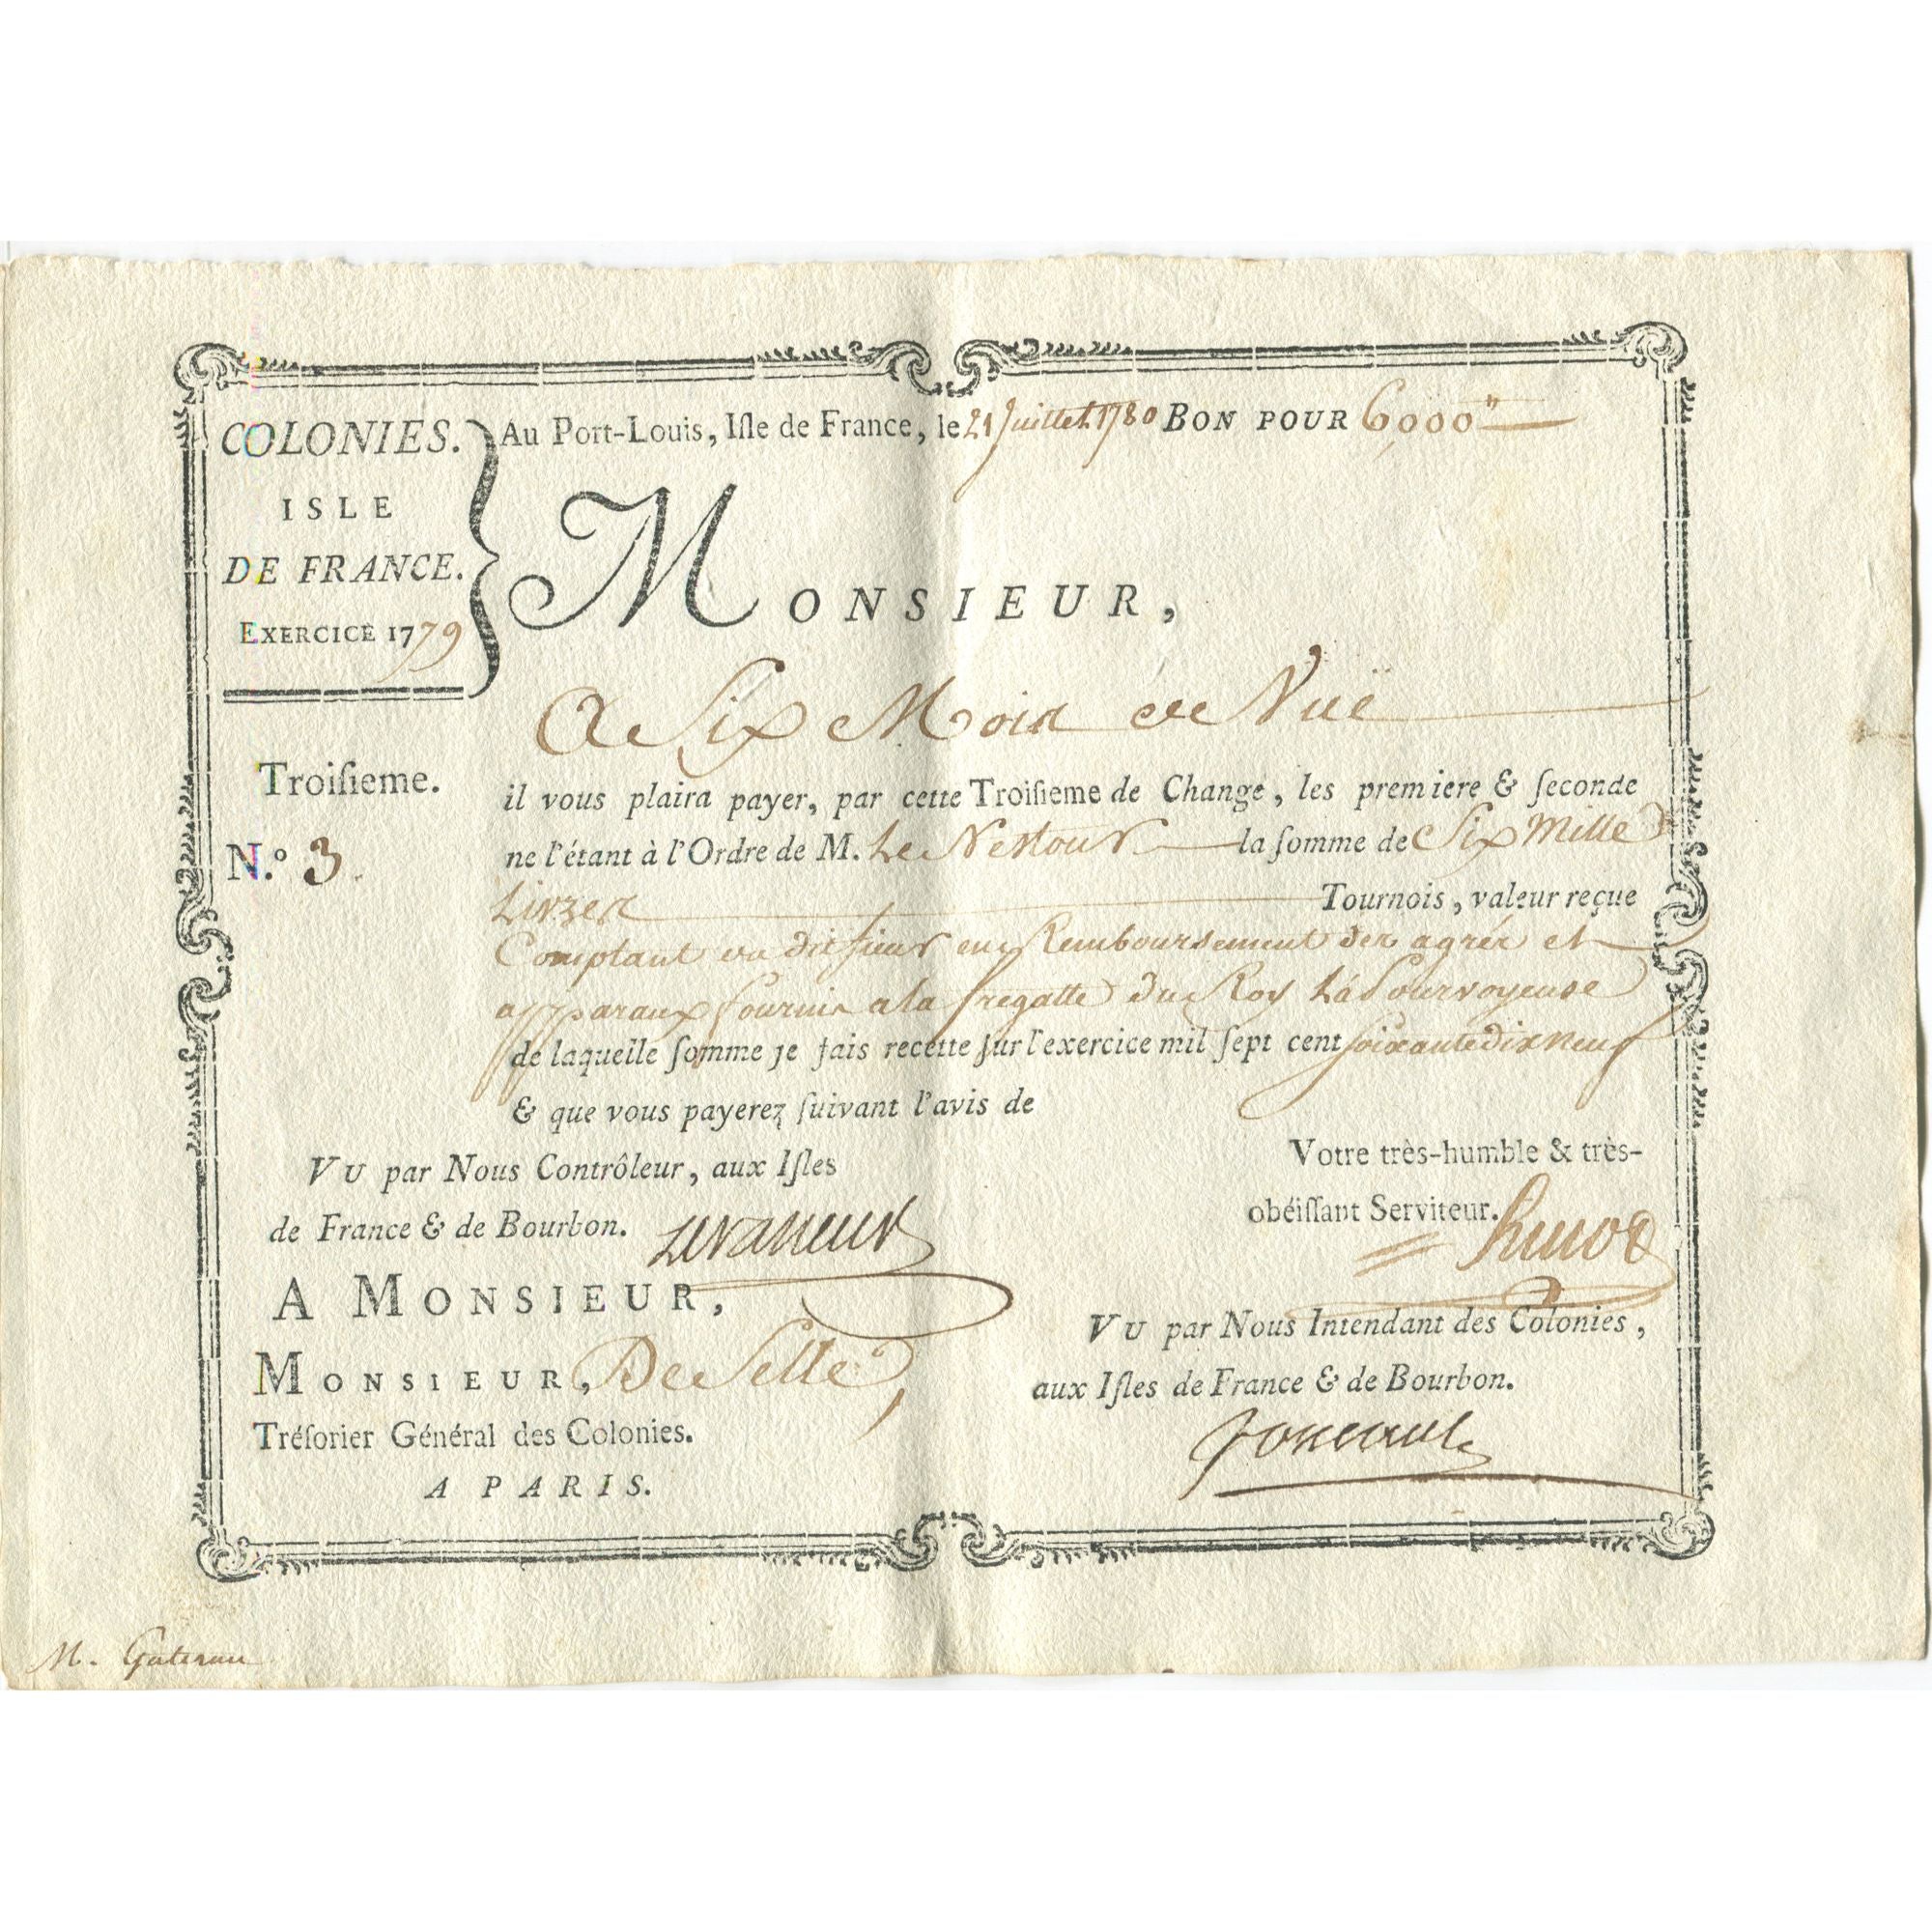 COLONIES.
ISLE
DE FRANCE.
EXERCICE 1779
Au Port-Louis, Iſle de France, le 21 Juillet 1780 BON POUR 6,000"
MONSIEUR,
A Six Mois de Vüe
Troiſieme.
il vous plaira payer, par cette Troiſieme de Change, les premiere & ſeconde
N.º 3
ne l'étant à l'Ordre de M. Le Nestour la ſomme de Six Mille
Livres Tournois, valeur reçue
Comptant du dit sieur en Remboursement des agrés et
apparaux fournis a la fregatte du Roy La Pourvoyeuse
de laquelle ſomme je fais recette ſur l'exercice mil ſept cent soixante dix neuf
& que vous payerez ſuivant l'avis de
Votre très-humble & très-
obéiſſant Serviteur.
VU par Nous Contrôleur, aux Iſles
de France & de Bourbon. Levasseur
A MONSIEUR,
MONSIEUR, De Selle,
Tréſorier Général des Colonies.
A PARIS.
VU par Nous Intendant des Colonies,
aux Iſles de France & de Bourbon.
Foucault
M.